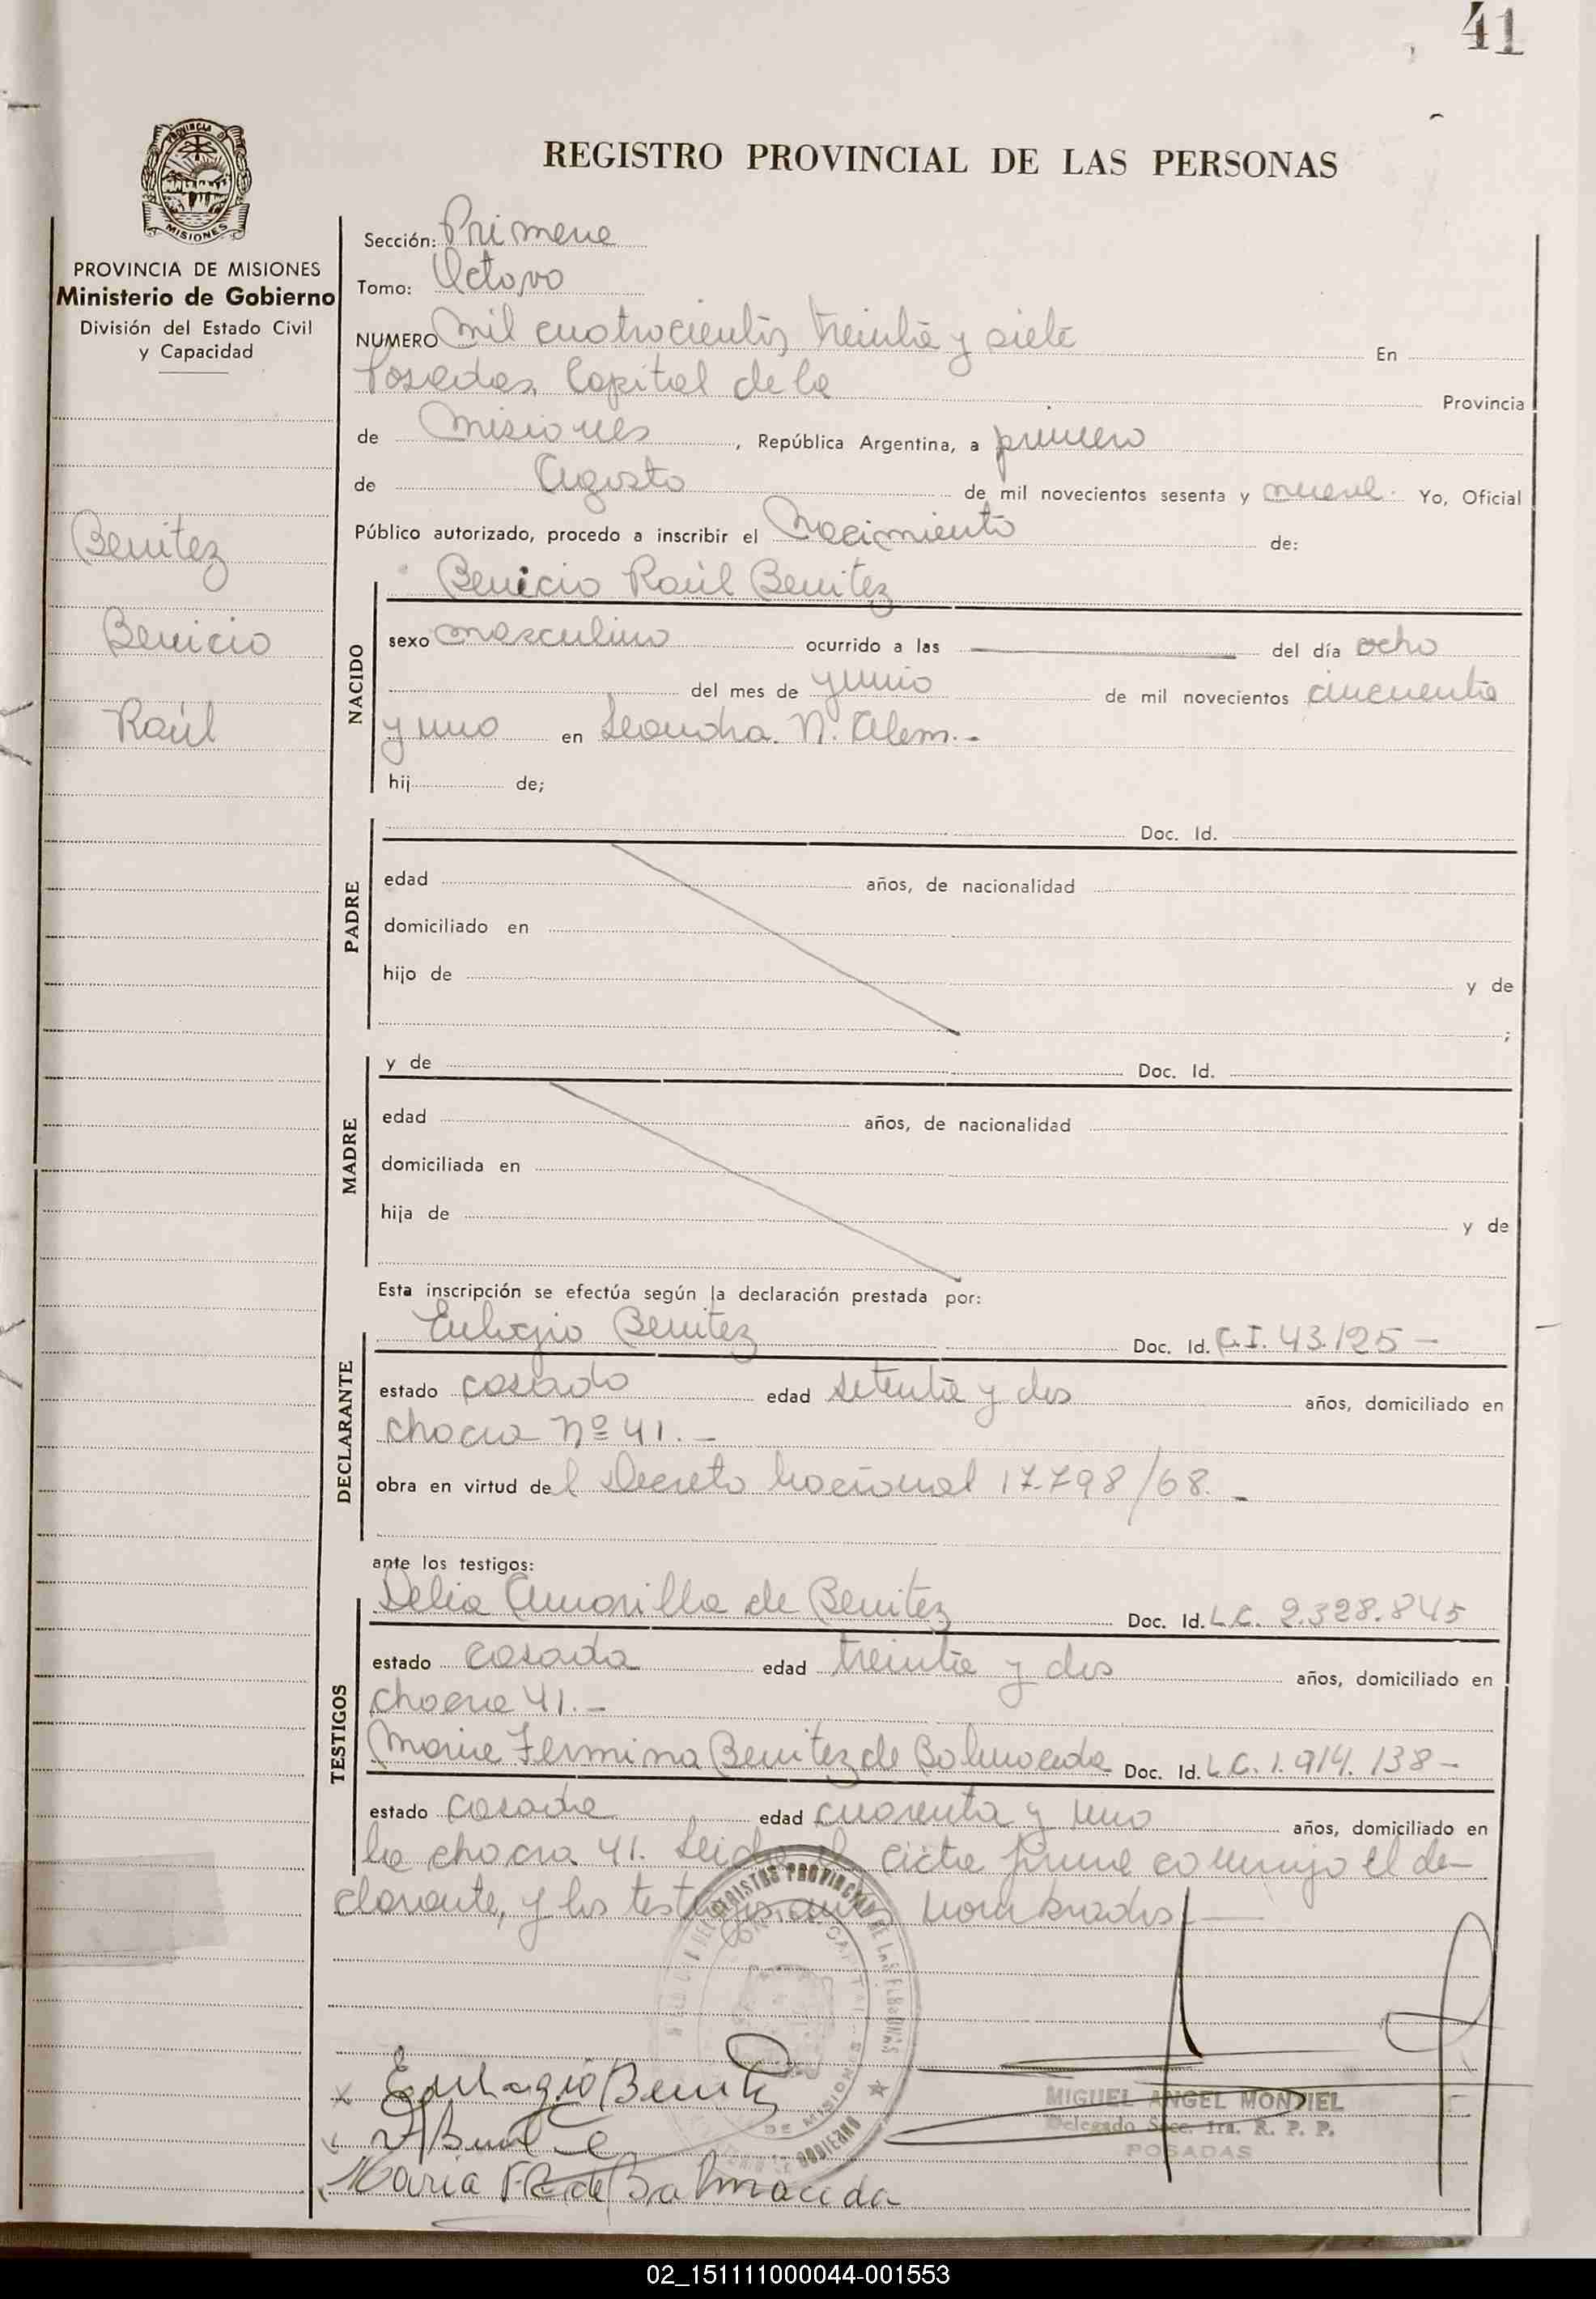 41
PROVINCIA DE
MISIONES
PROVINCIA DE MISIONES
Ministerio de Gobierno
División del Estado Civil
y Capacidad
Benitez
Benicio
Raúl
REGISTRO PROVINCIAL DE LAS PERSONAS
Sección: Primera
Tomo: Octavo
NUMERO Mil cuatrocientos treinta y siete En
Posadas, Capital de la Provincia
de Misiones, República Argentina, a primero
de Agosto de mil novecientos sesenta y nueve. Yo, Oficial
Público autorizado, procedo a inscribir el Nacimiento de:
Benicio Raúl Benitez
NACIDO
sexo masculino ocurrido a las del día ocho
del mes de Junio de mil novecientos cincuenta
y uno en Leandro. N. Alem.-
hij de;
PADRE
Doc. Id.
edad años, de nacionalidad
domiciliado en
hijo de y de
;
MADRE
y de Doc. Id.
edad años, de nacionalidad
domiciliada en
hija de y de
Esta inscripción se efectúa según la declaración prestada por:
DECLARANTE
Eulogio Benitez Doc. Id. C.I. 43.125 -
estado casado edad setenta y dos años, domiciliado en
chacra Nº 41.-
obra en virtud del Decreto Nacional 17.798/68.-
ante los testigos:
TESTIGOS
Delia Amarilla de Benitez Doc. Id. L.C. 2.328.845
estado casada edad treinta y dos años, domiciliado en
chacra 41.-
Maria Fermina Benitez de Balmaceda Doc. Id. L.C. 1.914.138-
estado casada edad cuarenta y uno años, domiciliado en
la chacra 41. Leida el acta firma conmigo el de-
clarante, y los testigos antes nombrados.-
REGISTRO PROVINCIAL DE LAS PERSONAS
Eulogio Benitez
Maria F B de Balmaceda
MIGUEL ANGEL MONTIEL
Delegado Secc. 1ra. R. P. P.
POSADAS
02_151111000044-001553